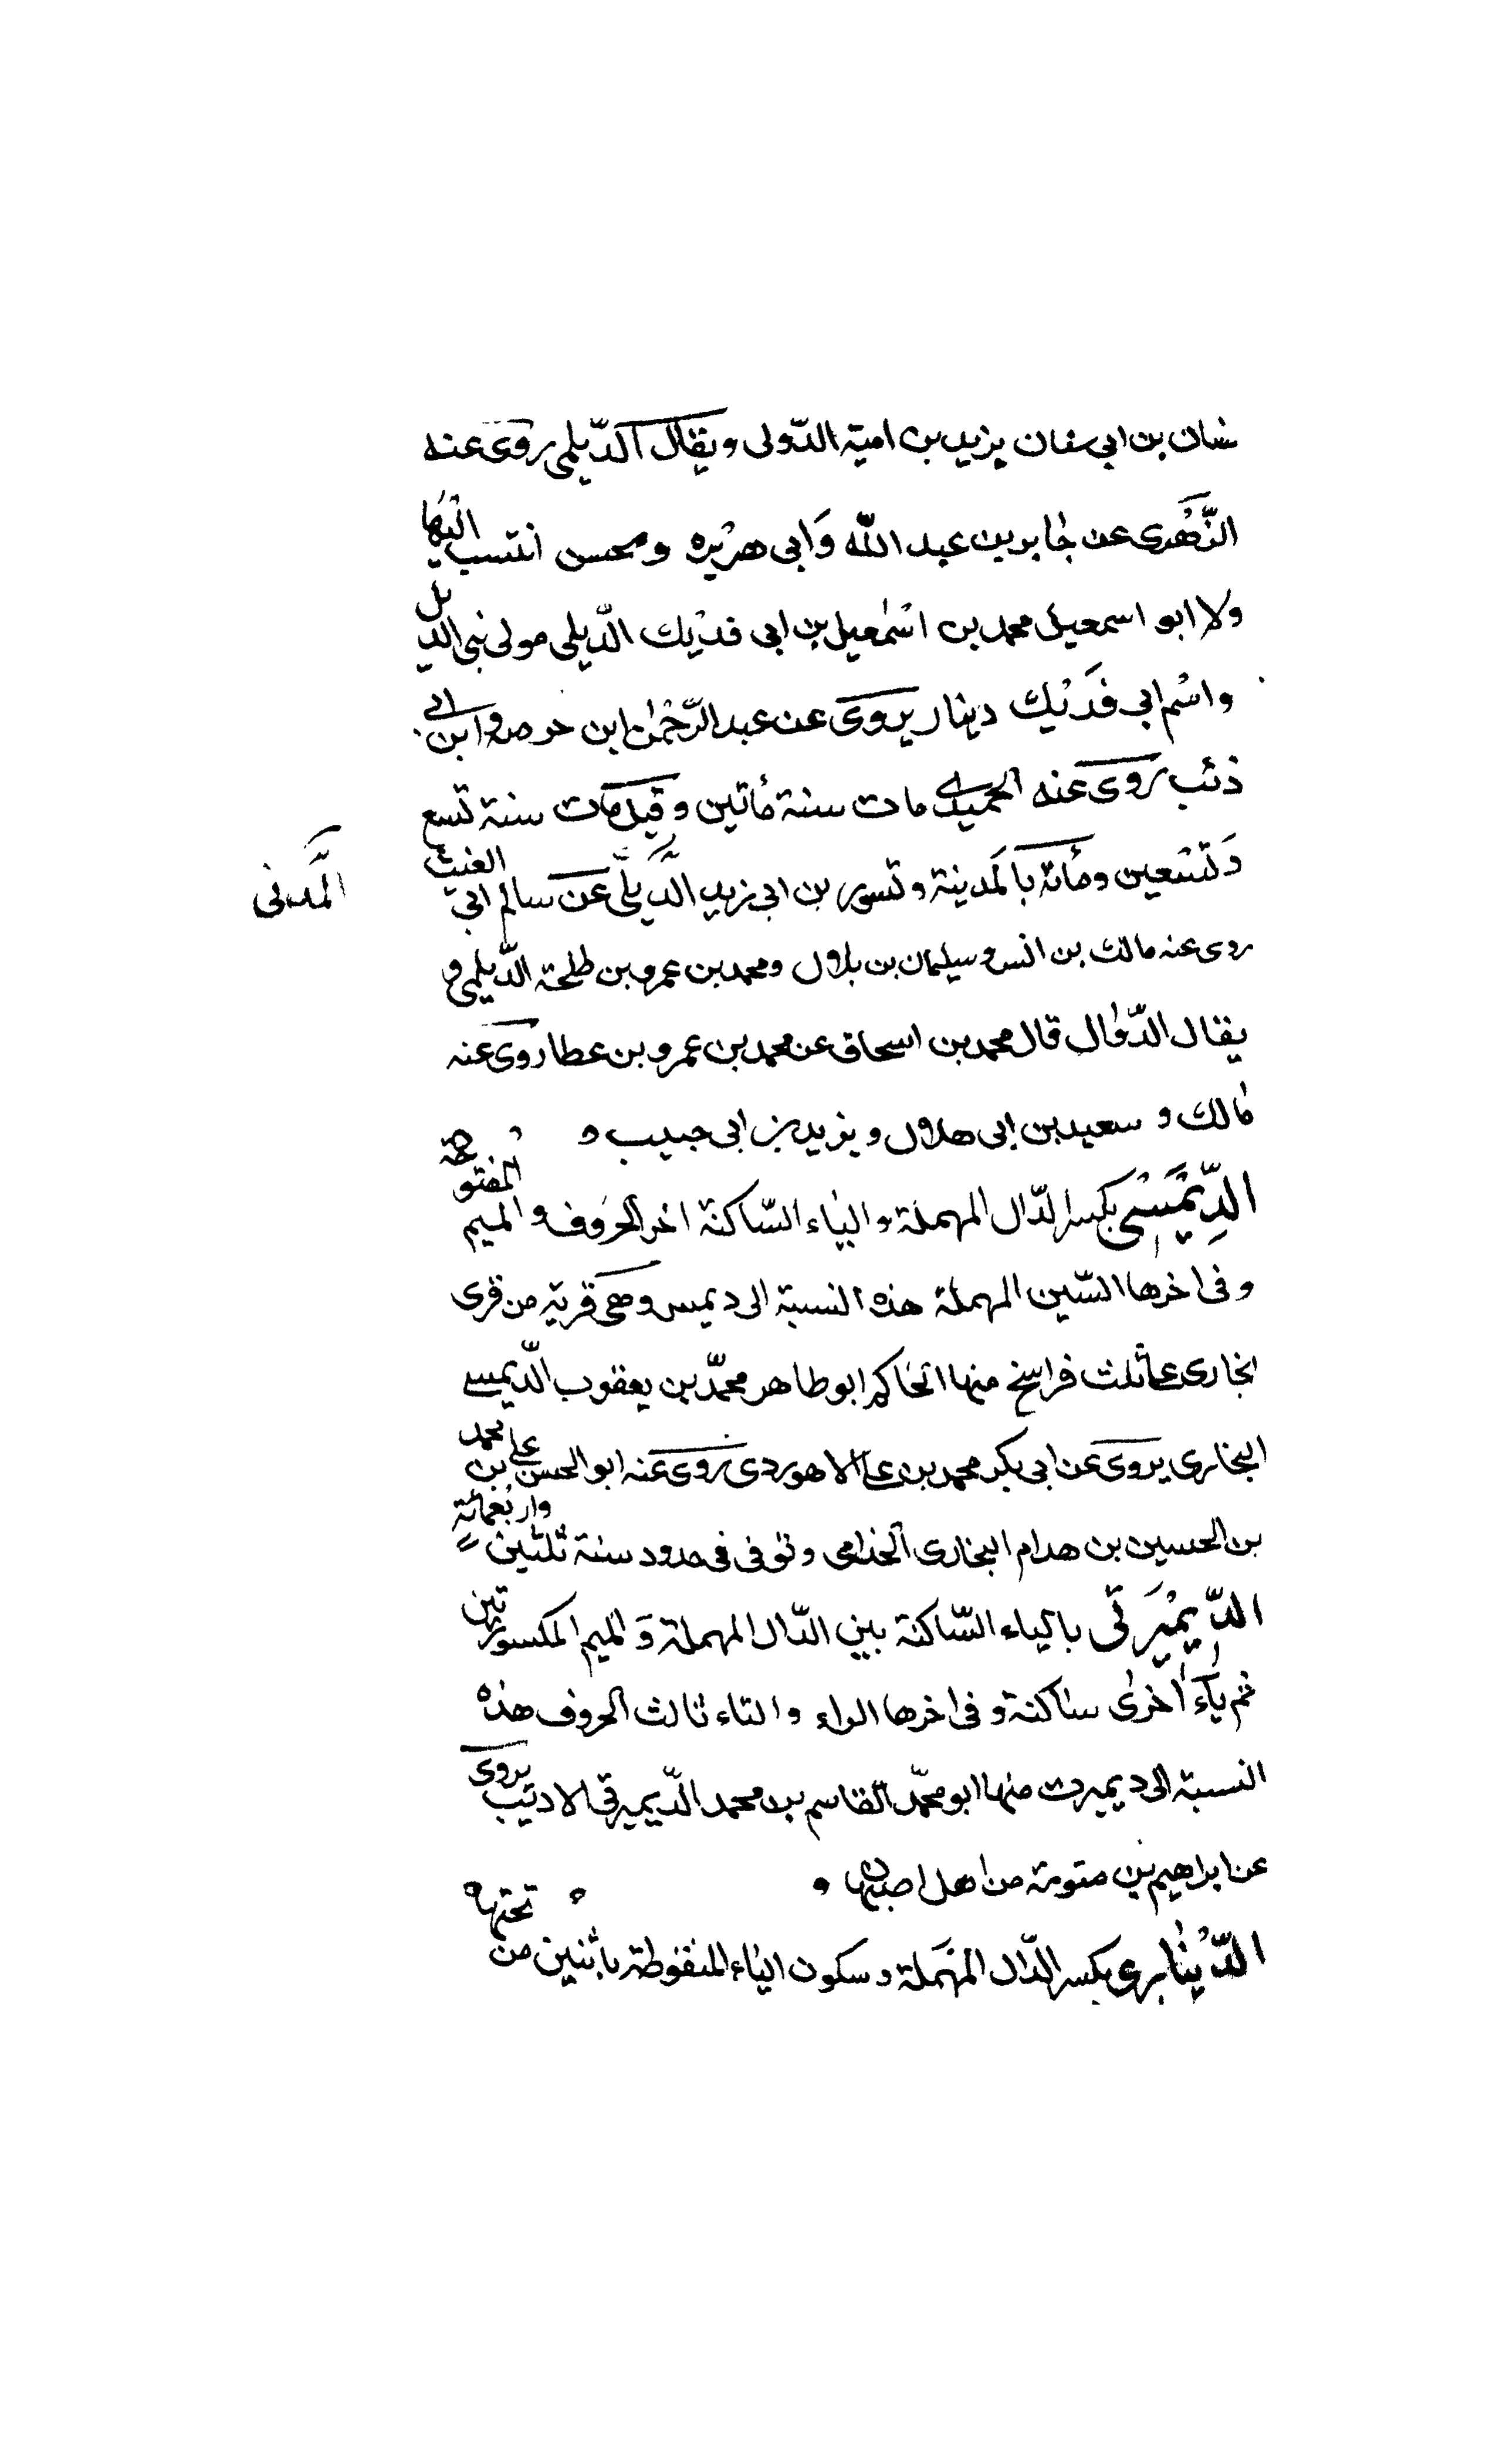 سنان بن ابي سنان يزيد بن امية الدّولى ويقال الدّيلمي روى عنه
الزّهرى عن جابر بن عبد الله وَابى هريْره ومحسن انتسب اليْها
ولا ابو اسمعيل محمد بن اسْمٰعيل بن ابى فديْك الدّيلى مولى بنى الديل
واسْم ابى فَديْك دينار يروى عن عبد الرّحْمٰن ابن حرمله وابن ابى
ذئب روى عنه الحميدى مات سنة مأتين وقيل مات سنة تسع
وَتسْعين ومأتة بالمَدينة وثور بن ابى زيد الدَّيلى عَن سالم ابى الغيث
المَدنى
روى عنه مالك بن انس وسليمان بن بلال ومحمد بن عمرو بن طلحة الدّيلمى و
يقال الدّؤال قال محمد بن اسحاق عن محمد بن عمرو بن عطا روى عنه
مٰالك و سعيد بن ابى هلال ويزيد بن ابى حبيب
الدِّيْمَسْى بكسر الدّال المهملة والياء السّاكنة اخر الحرُوف والميم المفتوحة
وفى اخرها السّين المهملة هذه النسبة الى ديمس وهى قرية من قرى
بخارى على ثلث فراسخ منها الحٰاكم ابو طاهر محمّد بن يعقوب الدّيمسى
البخارى يروى عن ابى بكر محمد بن على الاهوردى روى عنه ابو الحسن على بن محمد
بن الحسين بن هدام البخارى الخذامى وتوفى فى حدود سنة ثلثين واربعمائة
الدّيمْيَرتى بالياء السّاكنة بين الدّال المهملة وَالميم المكسورتين
ثم يآء اُخرىٰ سٰاكنة وفى اخرها الراء والتاء ثالث الحروف هذه
النسبة الى ديميرت منها ابو محمّد القاسم بن محمد الدّيميرتى الاديب يروى
عن ابراهيم بن متوية من اهل اصبهان
الدّيْنٰارى بكسر الدّال المهمَلة وسكون اليٰاء المنقوطة باثنين من تحتها